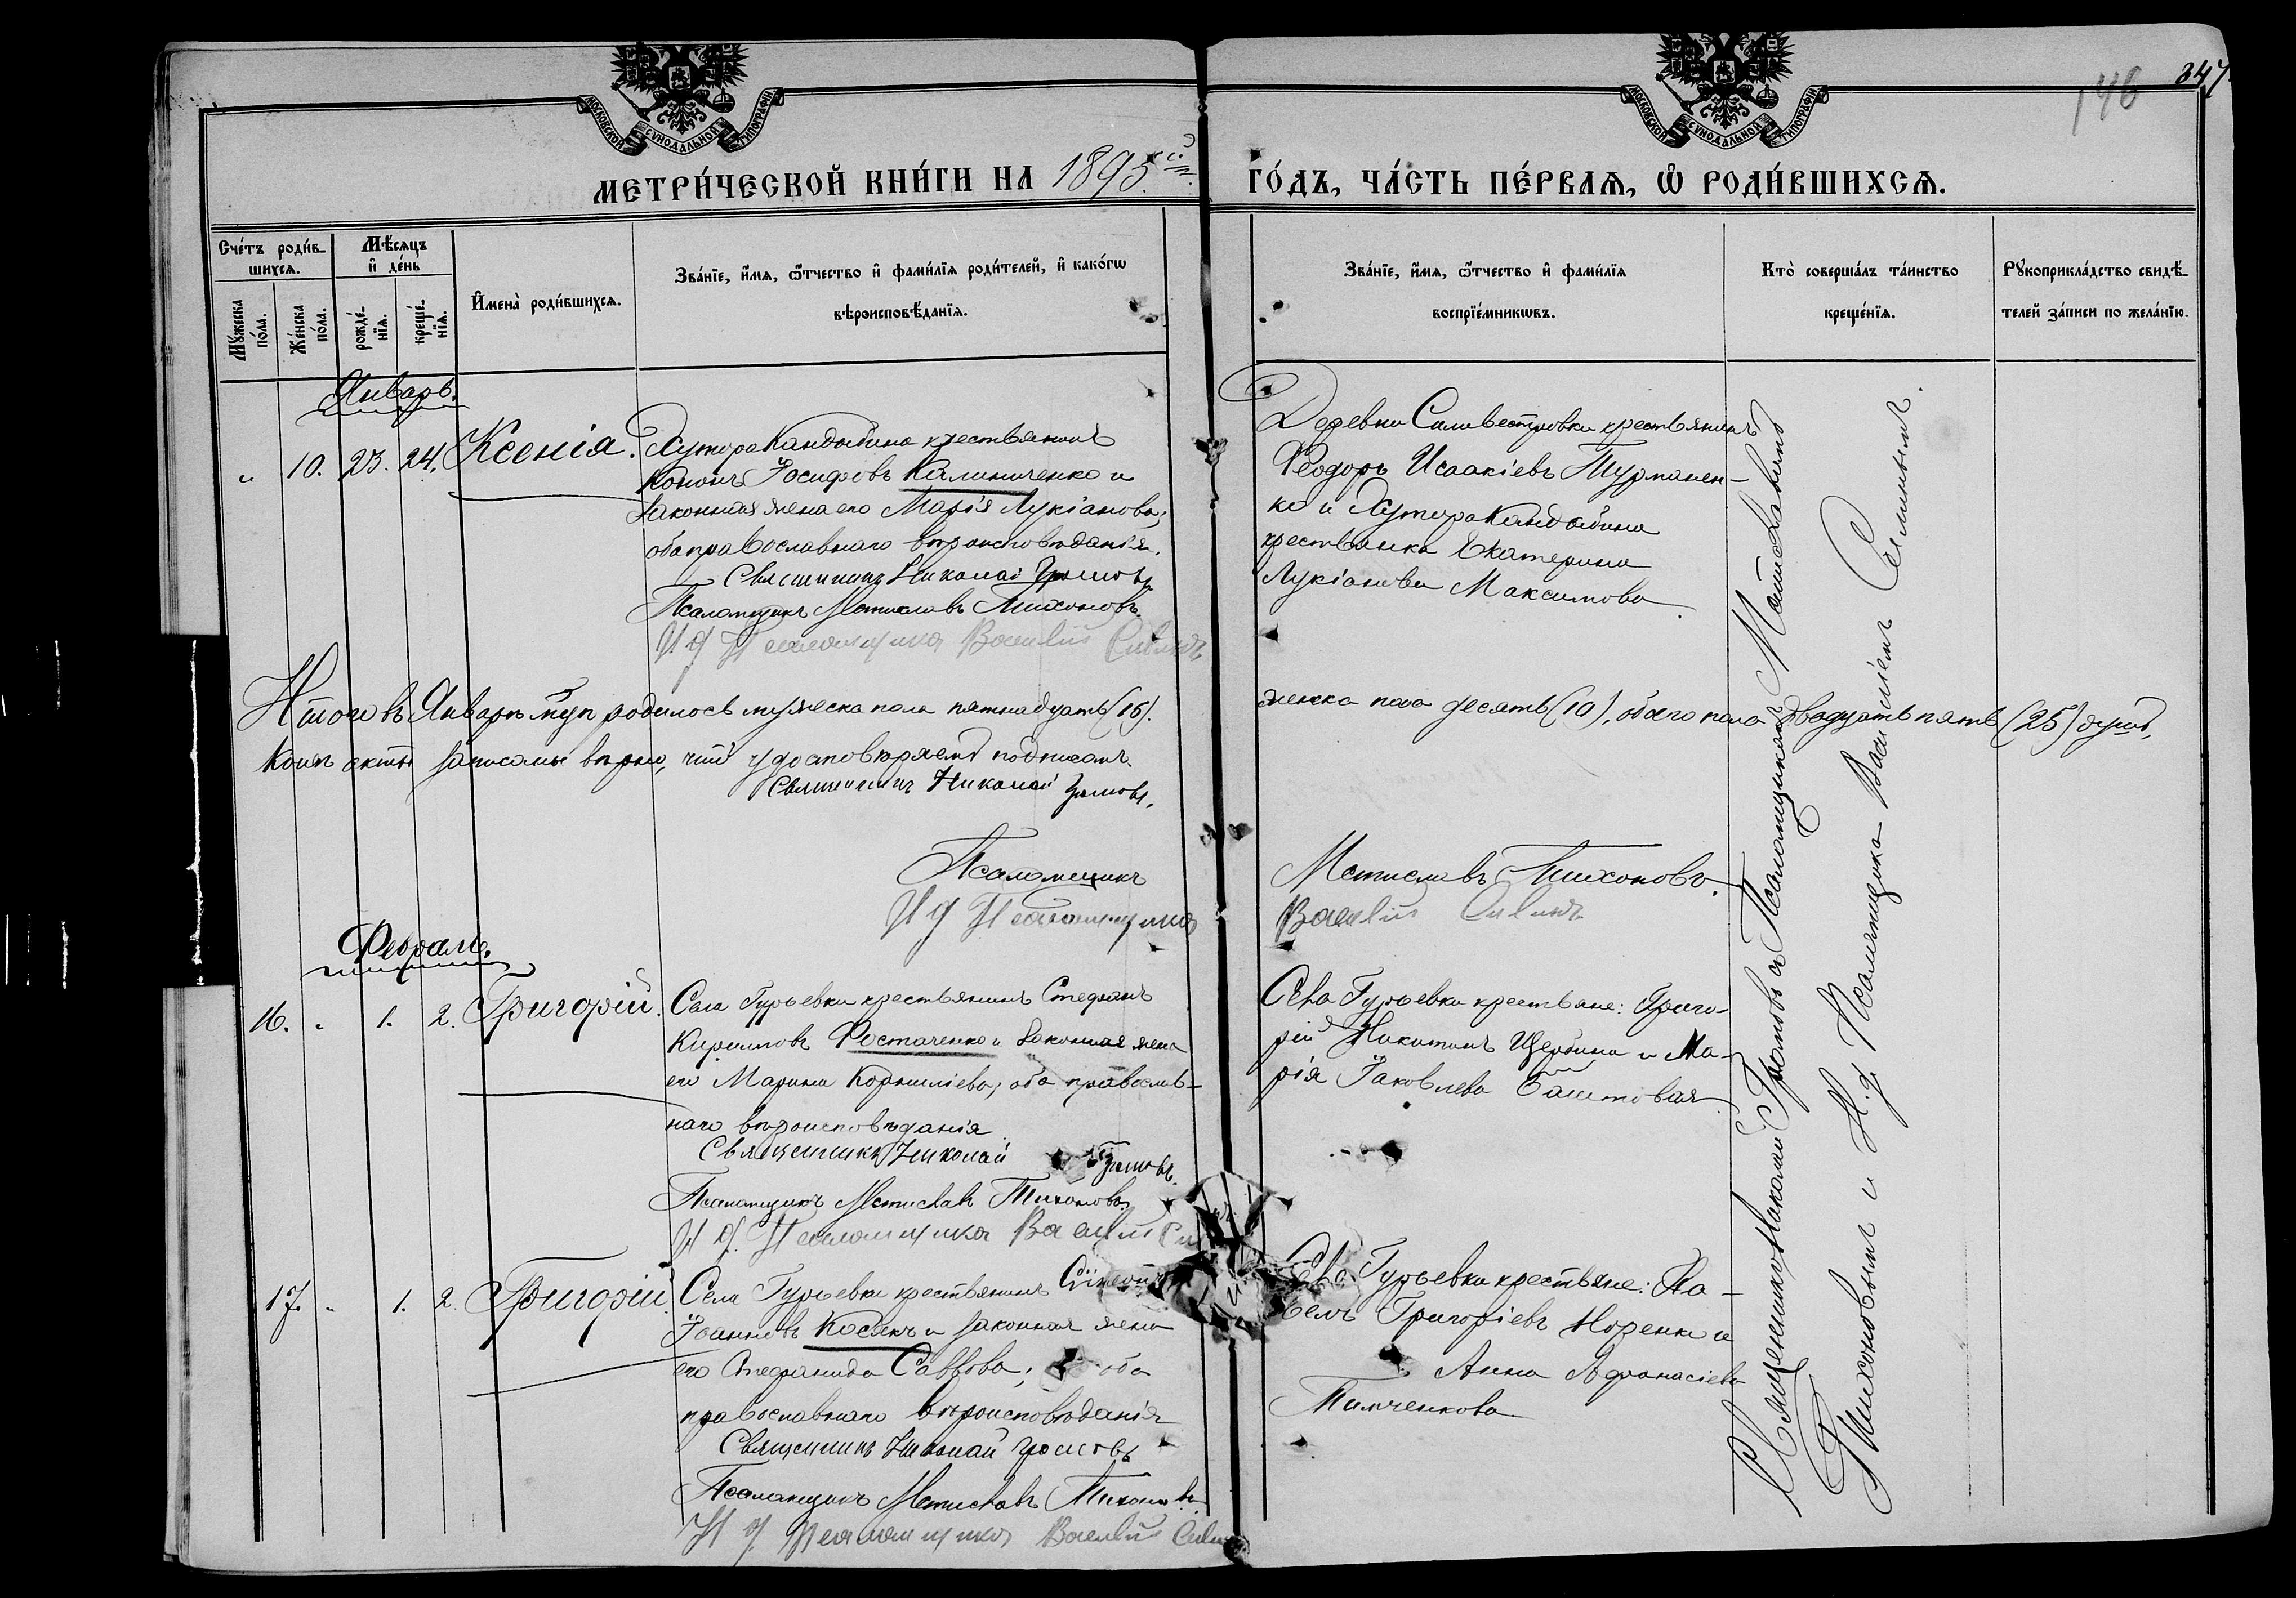 МОСКОВСКОЙ СѴНОДАЛЬНОЙ ТИПОГРАФІИ
МОСКОВСКОЙ СѴНОДАЛЬНОЙ ТИПОГРАФІИ
146
347
МЕТРИ́ЧЕСКОЙ КНИ́ГИ НА 1895.ый
ГО́ДЪ, ЧА́СТЬ ПЕ́РВАѦ, Ѡ РОДИ́ВШИХСѦ.
Сче́тъ роди́в-
шихсѧ.
Мꙋ́жеска
по́ла.
Же́нска
по́ла.
Мѣ́сѧцъ
и҆ де́нь
рожде́-
нїѧ.
креще́-
нїѧ.
И҆мена̀ роди́вшихсѧ.
Зва́нїе, и҆́мѧ, ѻ҆́тчество и҆ фами́лїѧ роди́телей, и҆ како́гѡ
вѣроисповѣ́данїѧ.
Зва́нїе, и҆́мѧ, ѻ҆́тчество и҆ фами́лїѧ
воспрїе́мникѡвъ.
Кто̀ соверша́лъ та́инство
креще́нїѧ.
Рꙋкоприкла́дство свидѣ́-
телей за́писи по жела́нїю.
Январь.
" 10. 23. 24. Ксенія.
Хутора Кандыбина крестьянинъ
Кононъ Іосифовъ Калиниченко и
законная жена его Марія Лукіанова;
оба православнаго вѣроисповѣданія.
Священникъ Николай Громовъ
Псаломщикъ Мстиславъ Тихоновъ.
И д Псаломщика Василій
Деревни Сильвестровки крестьянинъ
Ѳеодоръ Исаакіевъ Турманен-
ко и Хутора Кандыбина
крестьянка Екатерина
Лукіанова Максимова.
Итого въ Январѣ м-цѣ родилось мужеска пола пятнадцать (15).
женска пола десять (10), обоего пола двадцать пять (25) душъ,
Коихъ акты записаны вѣрно, что удостовѣряемъ подписомъ
Священникъ Николай Громовъ.
Псаломщикъ
Мстиславъ Тихоновъ.
И д Псаломщика
Василій
Февраль.
16. " 1. 2. Григорій.
Села Гурьевки крестьянинъ Стефанъ
Кирилловъ Фостаченко и законная жена
его Марина Корниліева; оба православ-
наго вѣроисповѣданія
Священникъ Николай Громовъ.
Псаломщикъ Мстиславъ Тихоновъ
И д. Псаломщика Василій
Села Гурьевки крестьяне: Григо-
рій Никитинъ Щербина и Ма-
рія Іаковлева Баштовая.
17. " 1. 2. Григорій.
Села Гурьевки крестьянинъ Сѵмеонъ
Іоанновъ Косякъ и законная жена
его Стефанида Саввова; оба
православнаго вѣроисповѣданія
Священникъ Николай Громовъ
Псаломщикъ Мстиславъ Тихоновъ
И д. Псаломщика Василій
Села Гурьевки крестьяне: Па-
велъ Григоріевъ Норенко и
Анна Аѳанасіева
Тимченкова
Священникъ Николай Громовъ съ Псаломщикомъ Мстиславомъ
Тихоновымъ и И. д. Псаломщика Василіемъ